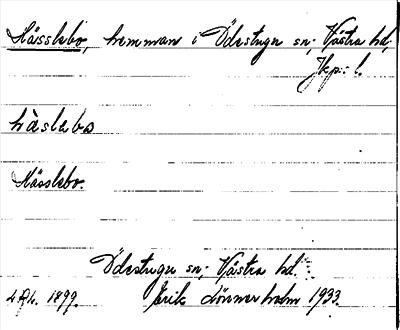 Hässlebo, hemman i Ödestugu sn; Västra hd,
Jkp: l.
hàslebo
Hässlebo.
Ödestugu sn; Västra hd.
1899. Erik Lönnerholm 1933.